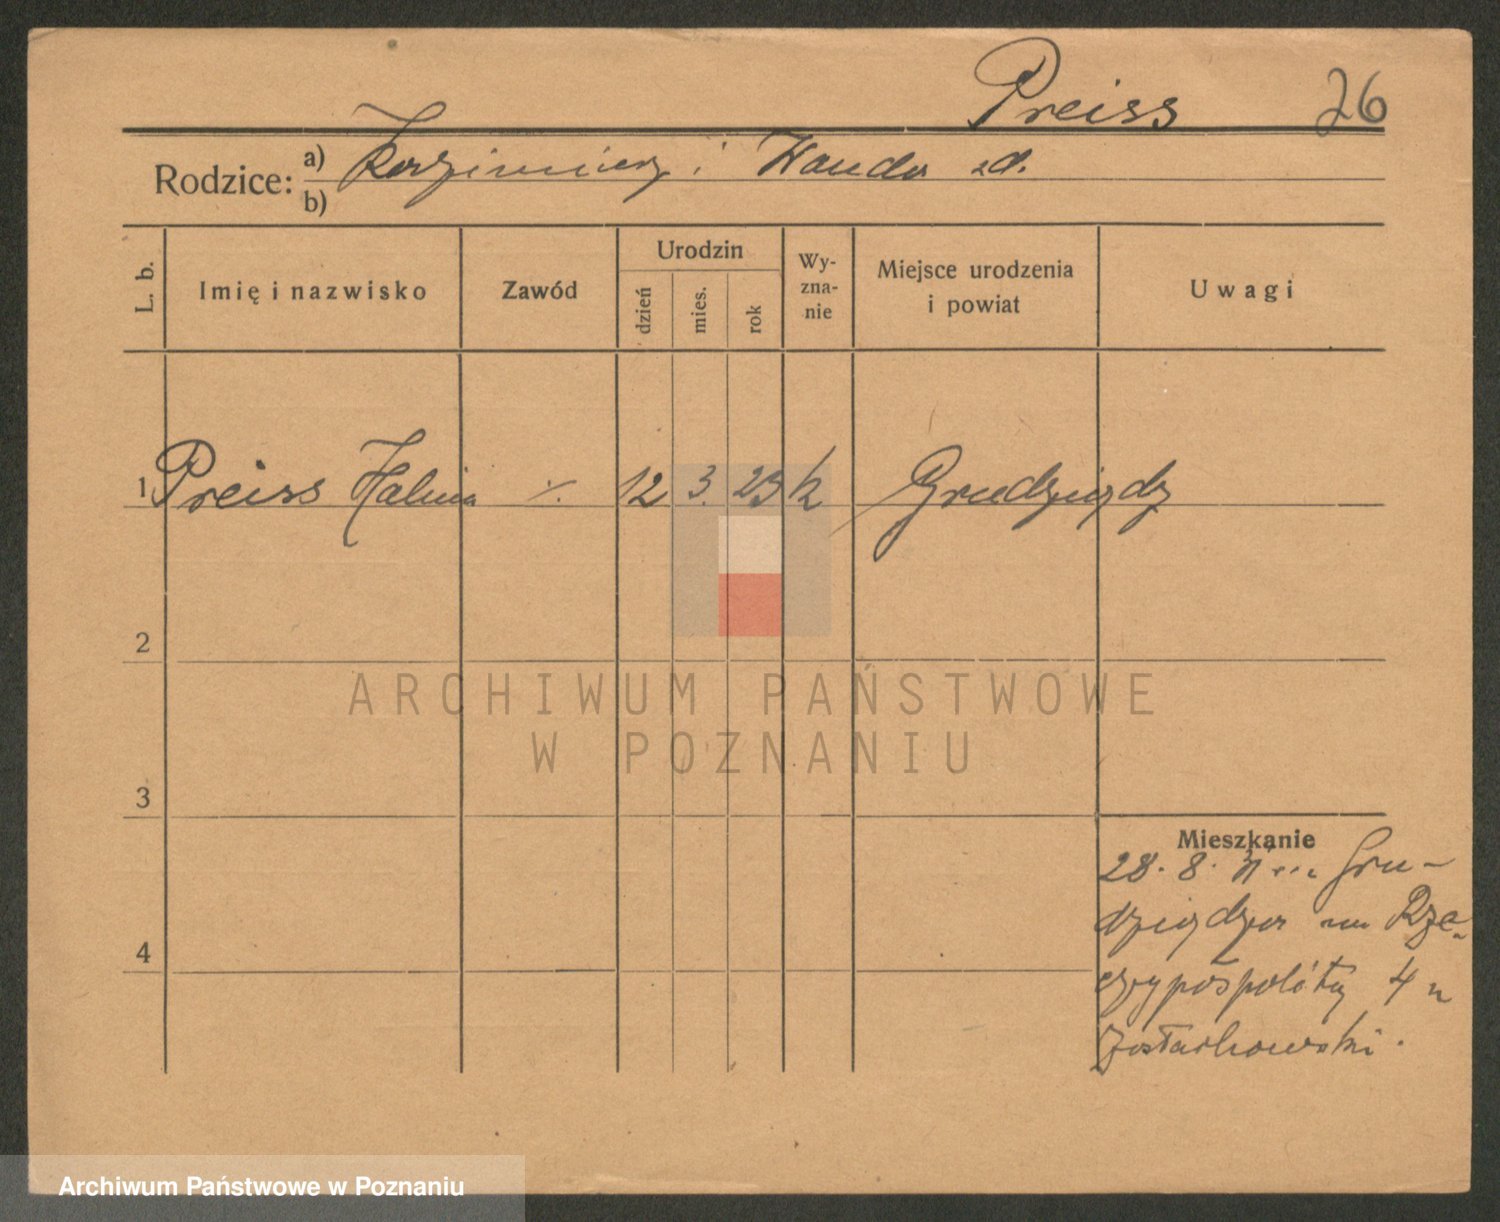 Preiss 26
Rodzice: a) Kazimierz i Wanda zd.
b)
L. b.
Imię i nazwisko
Zawód
Urodzin
dzień
mies.
rok
Wy-
zna-
nie
Miejsce urodzenia
i powiat
Uwagi
1 Preiss Halina ./. 12 3. 23 k Grudziądz
2
3
4
Mieszkanie
28. 8. 31 Gru-
dziądza Rze-
czypospolitej 4 u
ARCHIWUM PAŃSTWOWE
W POZNANIU
Archiwum Państwowe w Poznaniu